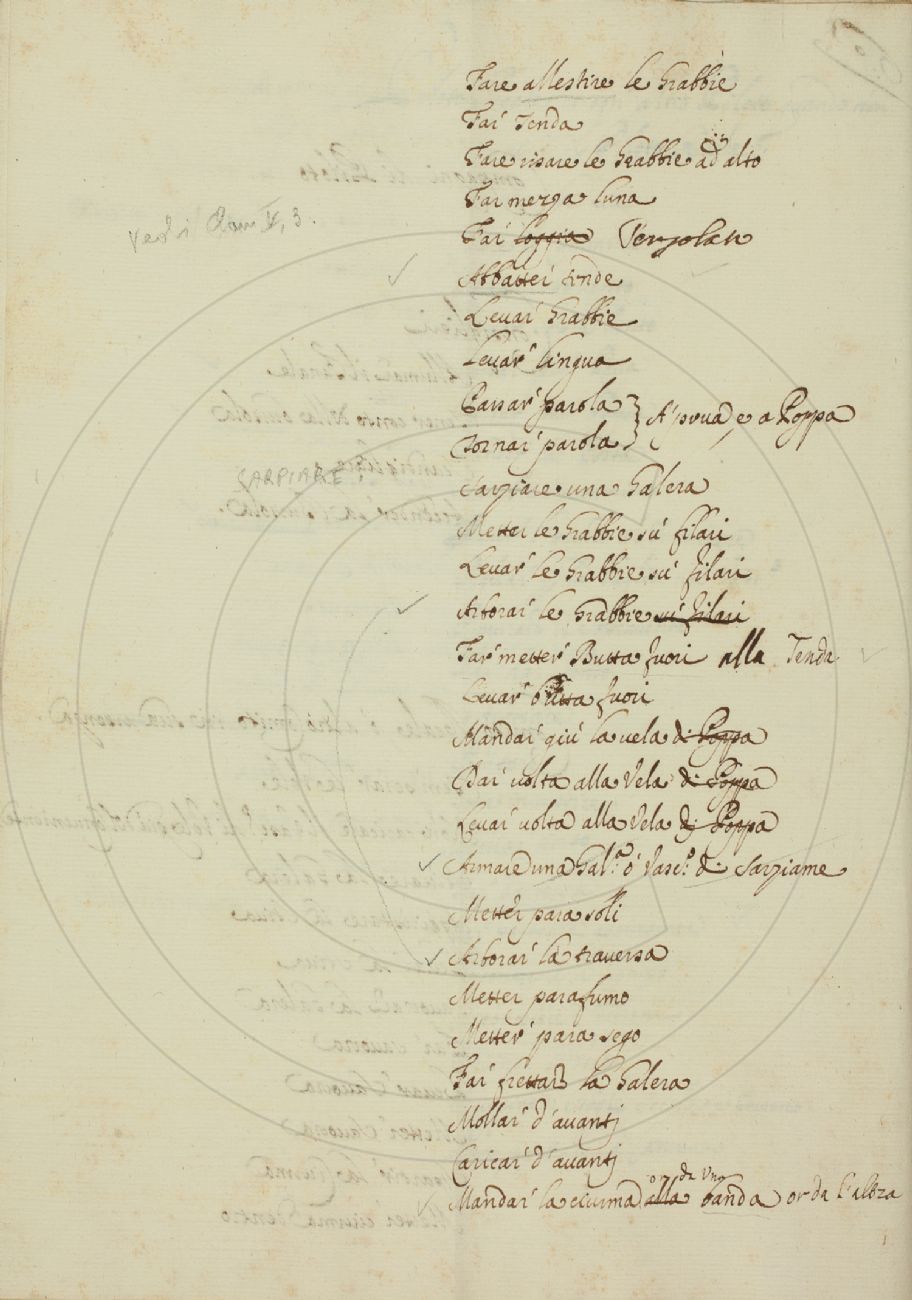 Fare allestire le Grabbie
Far Tenda
Fare issare le Grabbie ad alto
Far meza luna
vedi
Far loggia
Abbatter tende
Levar Grabbie
Levar lingua
Passar parola
A prova, e a Poppa
Tornar parola
SARPIARE
Sarpiare una Galera
Metter le Grabbie sù filari
Levar le Grabbie sù filari
Arborar le Grabbie sù filari
Far metter Butta fuori alla Tenda
Levar butta fuori
Mandar giù la vela di Poppa
Dar volta alla Vela di Poppa
Levar volta alla Vela di Poppa
Armare una Gal.ª ò Vasc.º di Sarpiame
Metter para soli
Arborar la traversa
Metter parafumo
Metter para sego
Far frettar la Galera
Mollar d'avantj
Caricar d'avantj
or da una
Mandar la ciurma alla banda or da l'altra